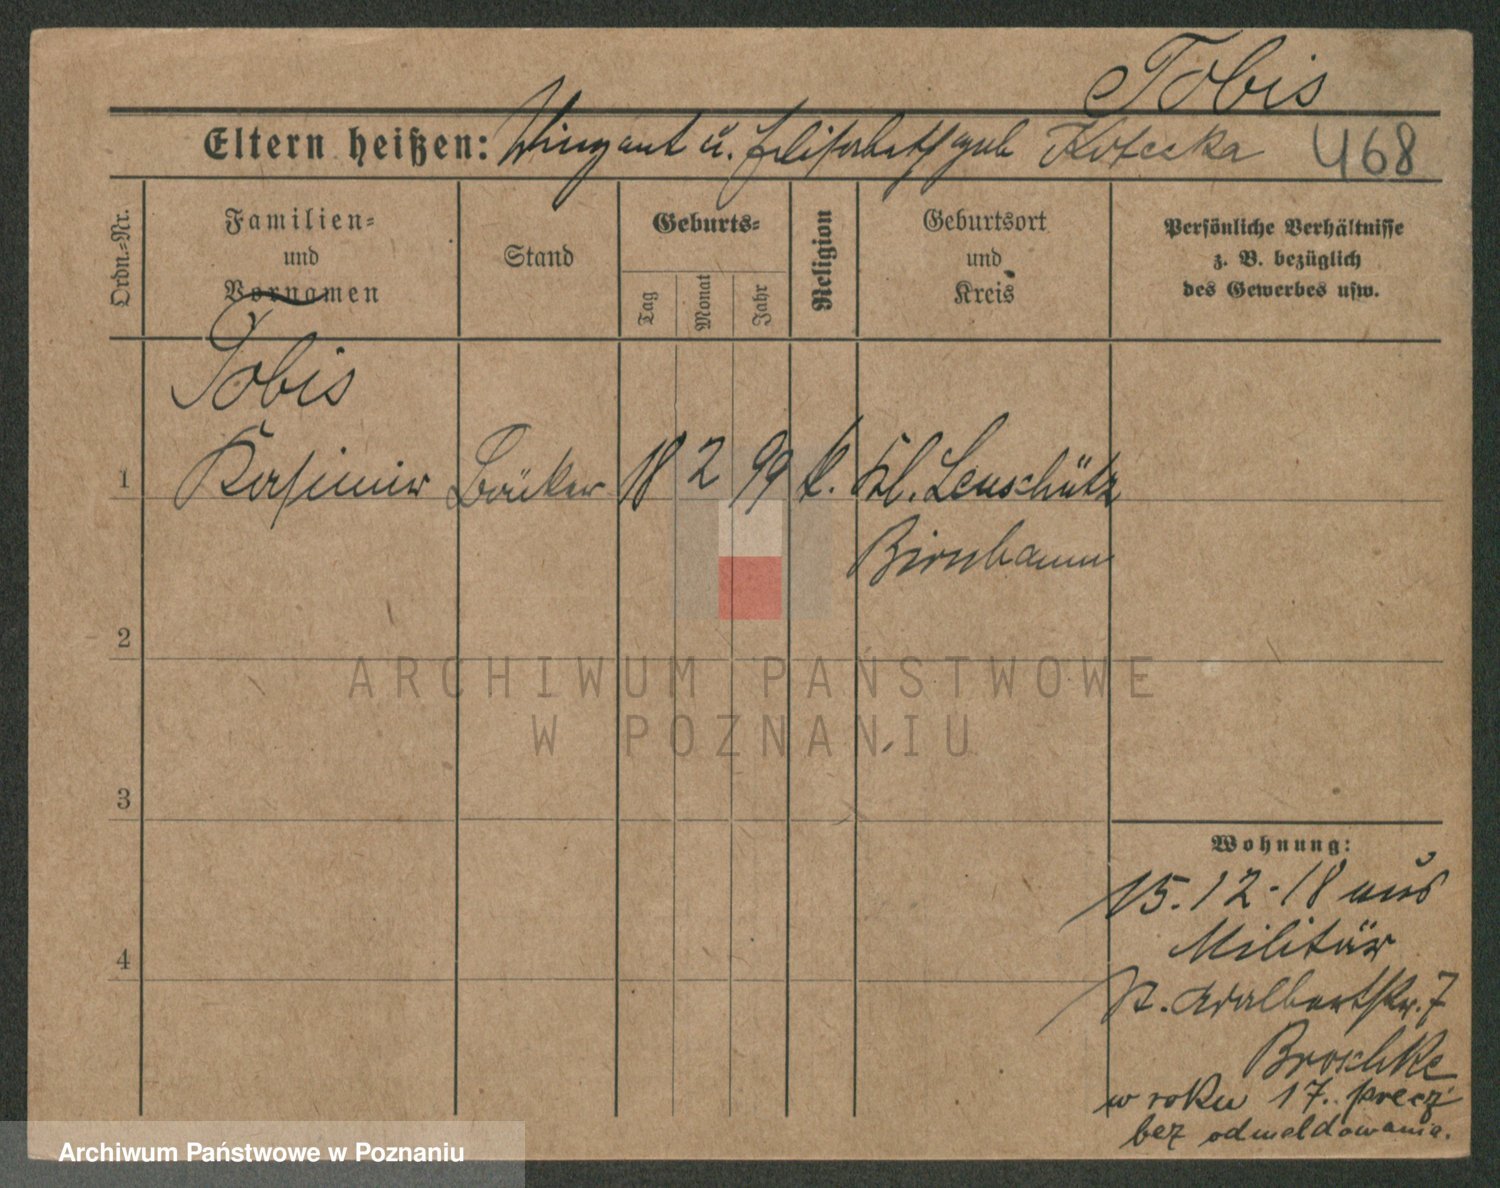 Tobis
Eltern heißen: Vinzent u. Elisabeth geb Kotecka 468
Ordn.-Nr.
Familien-
und
Vornamen
Stand
Geburts-
Tag
Monat
Jahr
Religion
Geburtsort
und
Kreis
Persönliche Verhältnisse
z. B. bezüglich
des Gewerbes usw.
Tobis
1 Kasimir Bäcker 18 2 99 k. Kl. Leuschütz
Birnbaum
2
ARCHIWUM PAŃSTWOWE
W POZNANIU
3
Wohnung:
15.12-18 aus
Militär
4
St. Adalbertstr. 7
Broschke
w roku 17. precz
bez odmeldowania.
Archiwum Państwowe w Poznaniu